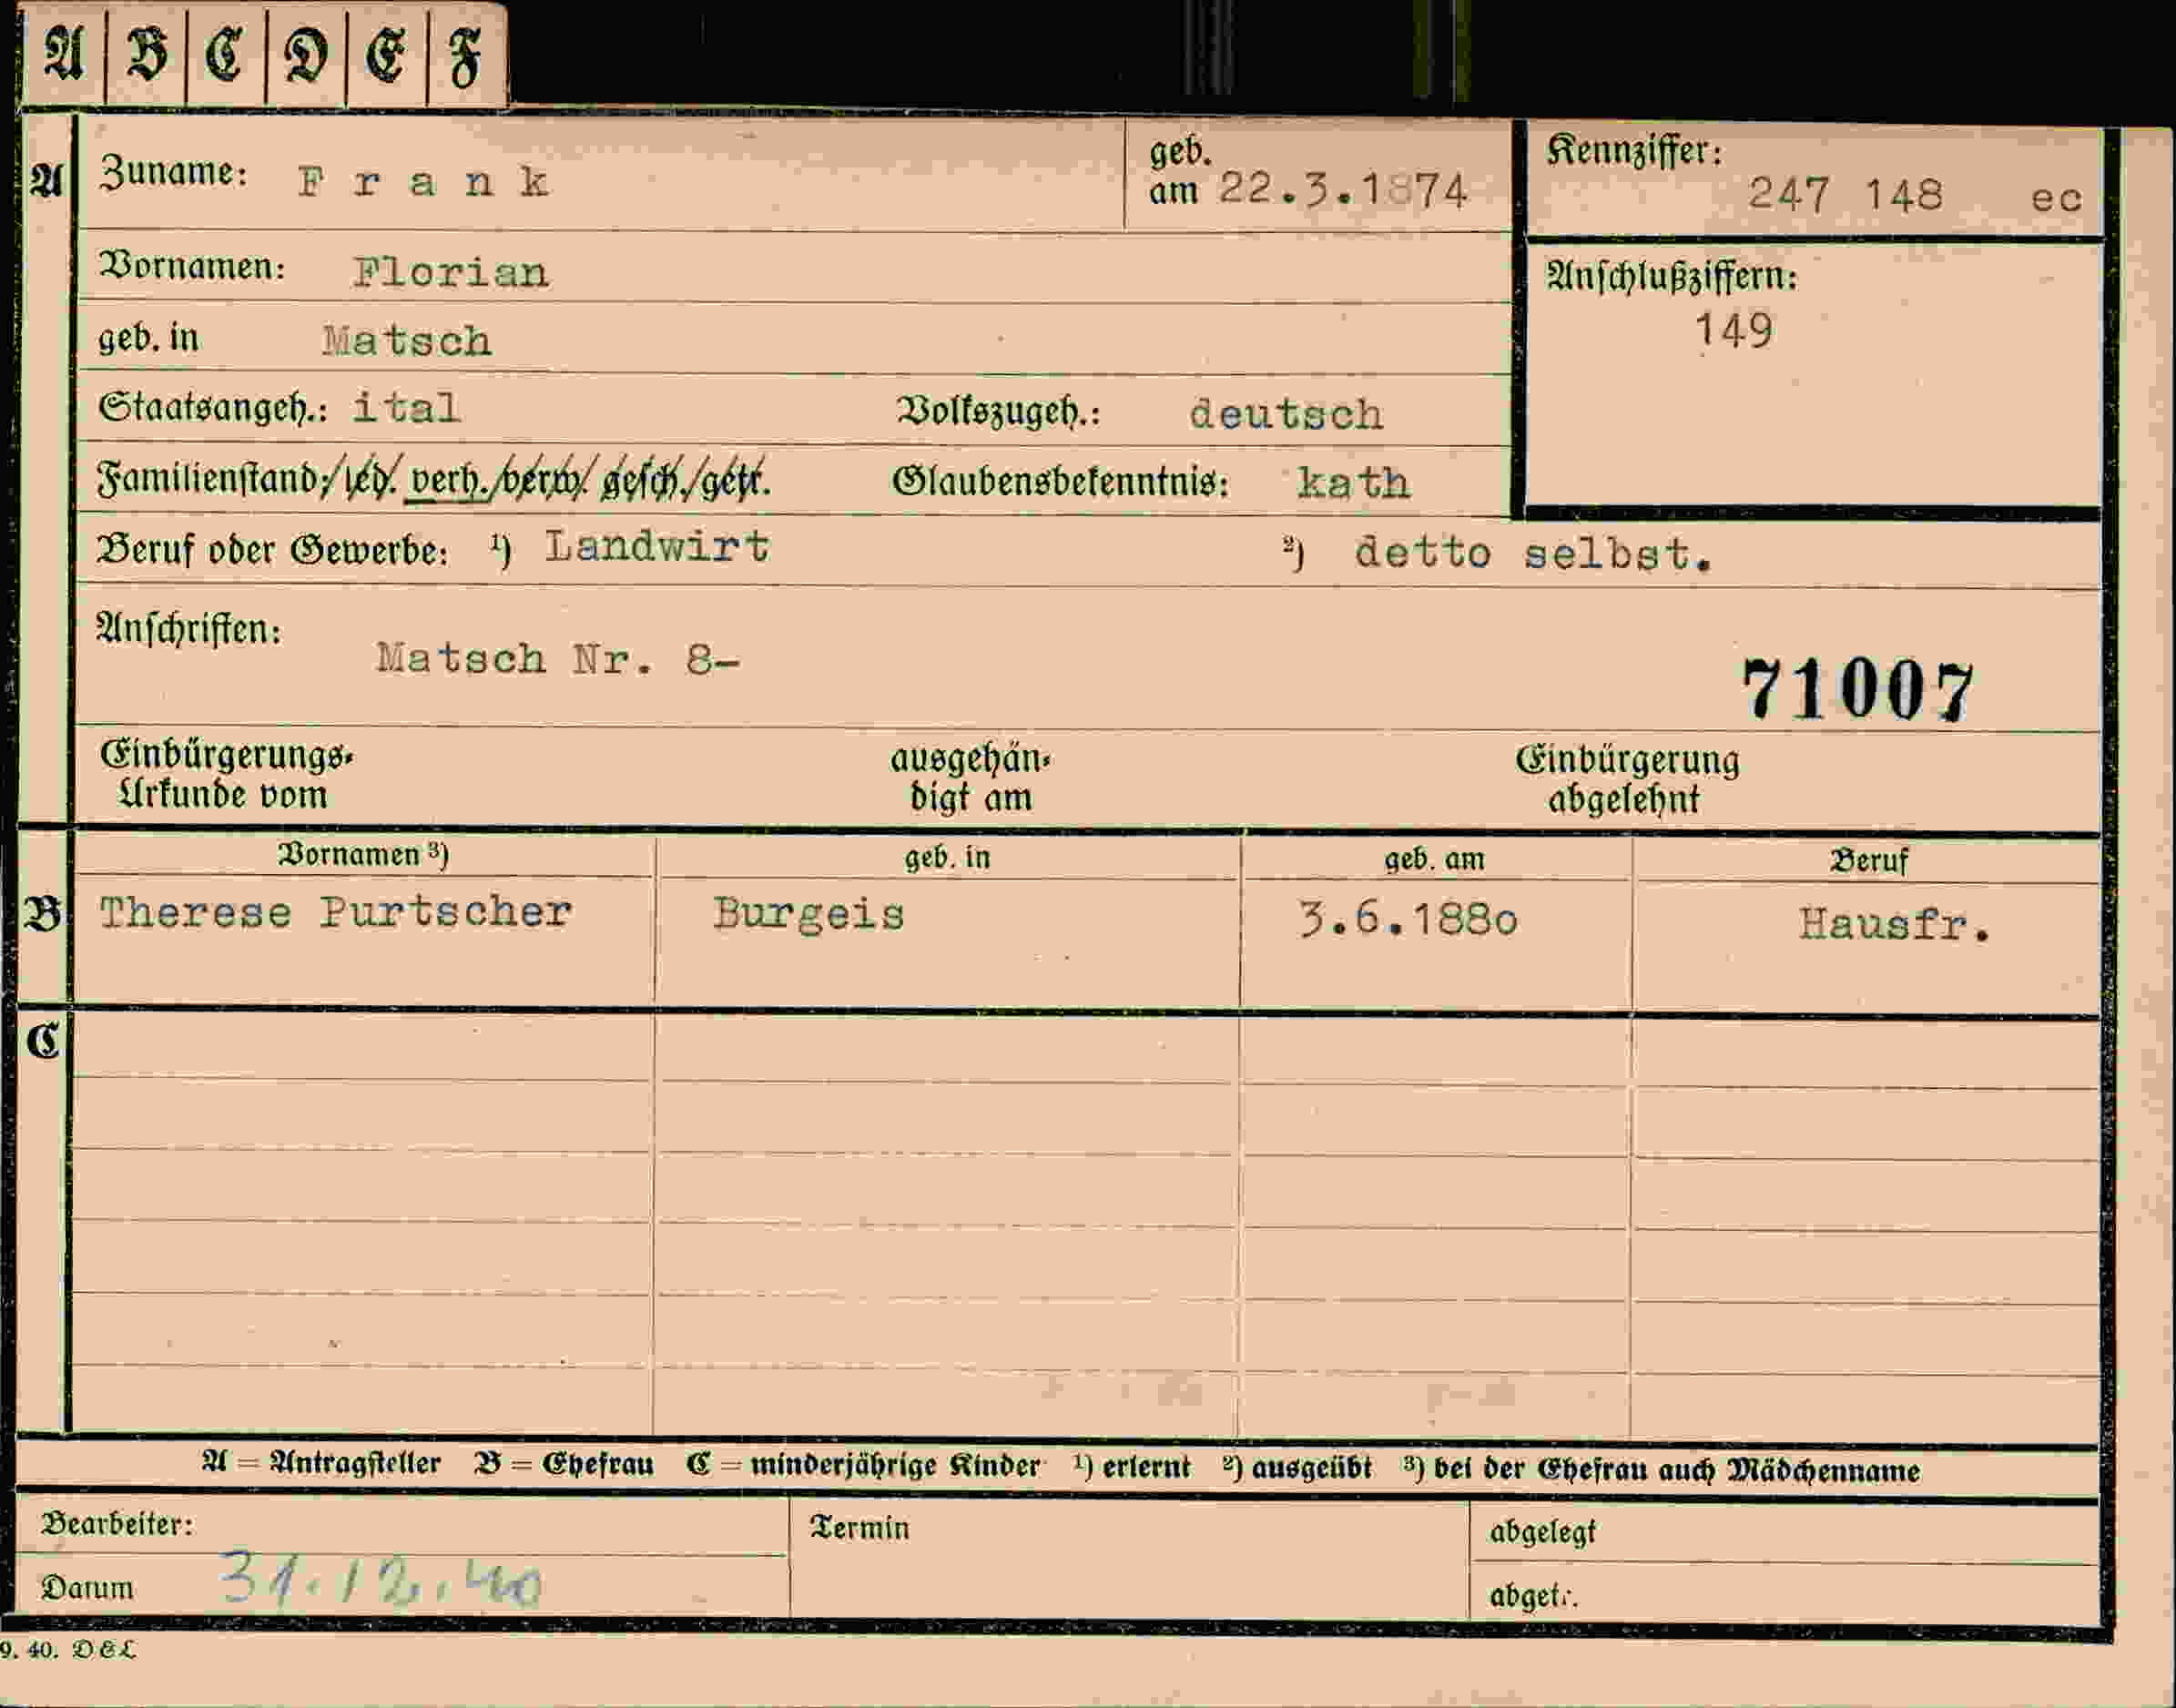 A B C D E F
A Zuname: Frank geb. am 22.3.1874 Kennziffer: 247 148 ec
Vornamen: Florian
Anschlußziffern: 149
geb. in Matsch
Staatsangeh.: ital Volkszugeh.: deutsch
Familienstand: led. verh. verw. gesch. getr. Glaubensbekenntnis: kath
Beruf oder Gewerbe: ¹) Landwirt ²) detto selbst.
Anschriften: Matsch Nr. 8-
71007
Einbürgerungs- ausgehän- Einbürgerung
Urkunde vom digt am abgelehnt
Vornamen ³) geb. in geb. am Beruf
B Therese Purtscher Burgeis 3.6.1880 Hausfr.
C
A = Antragsteller B = Ehefrau C = minderjährige Kinder ¹) erlernt ²) ausgeübt ³) bei der Ehefrau auch Mädchenname
Bearbeiter: Termin abgelegt
Datum 31.12.40 abget.:
9. 40. DEL